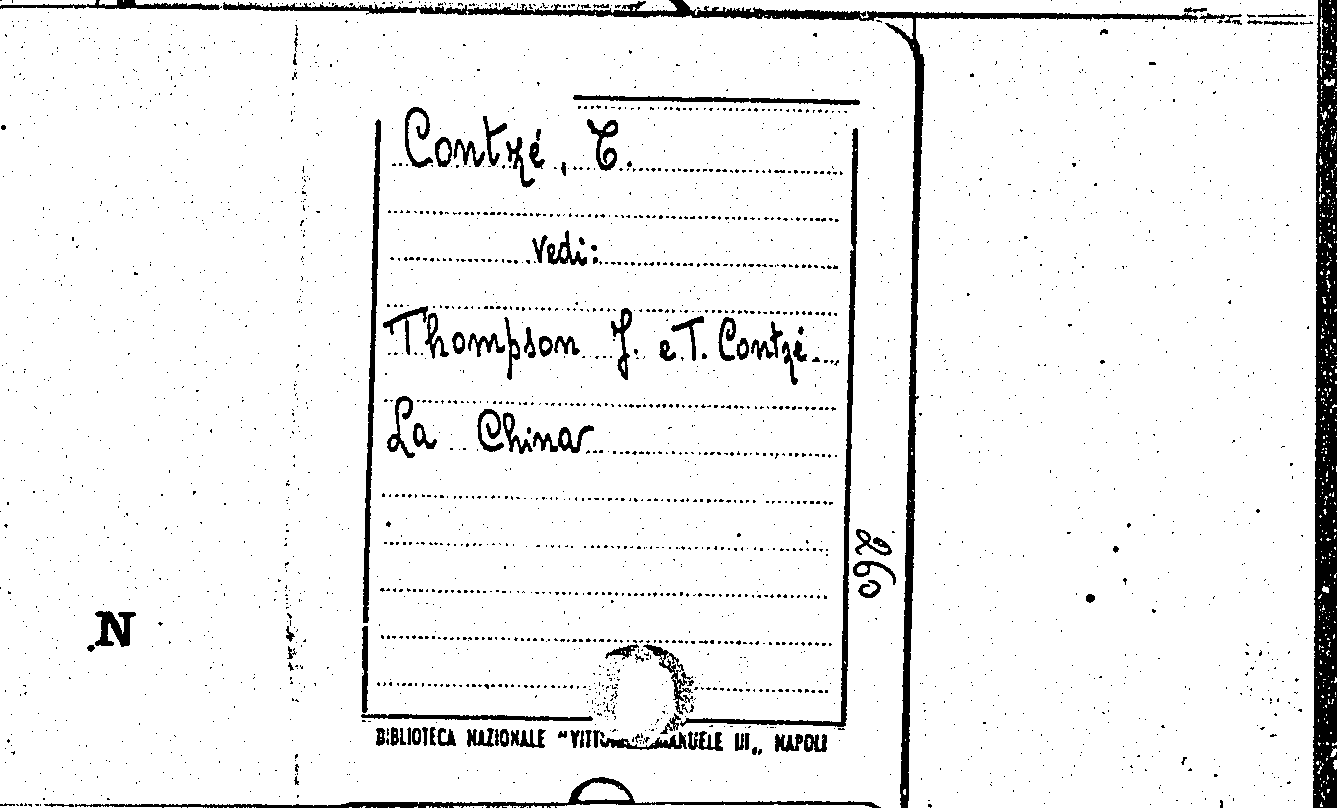 Contzé, T.
vedi:
Thompson J. e T. Contzé
La China
260
N
BIBLIOTECA NAZIONALE "VITTORIO EMANUELE III„ NAPOLI